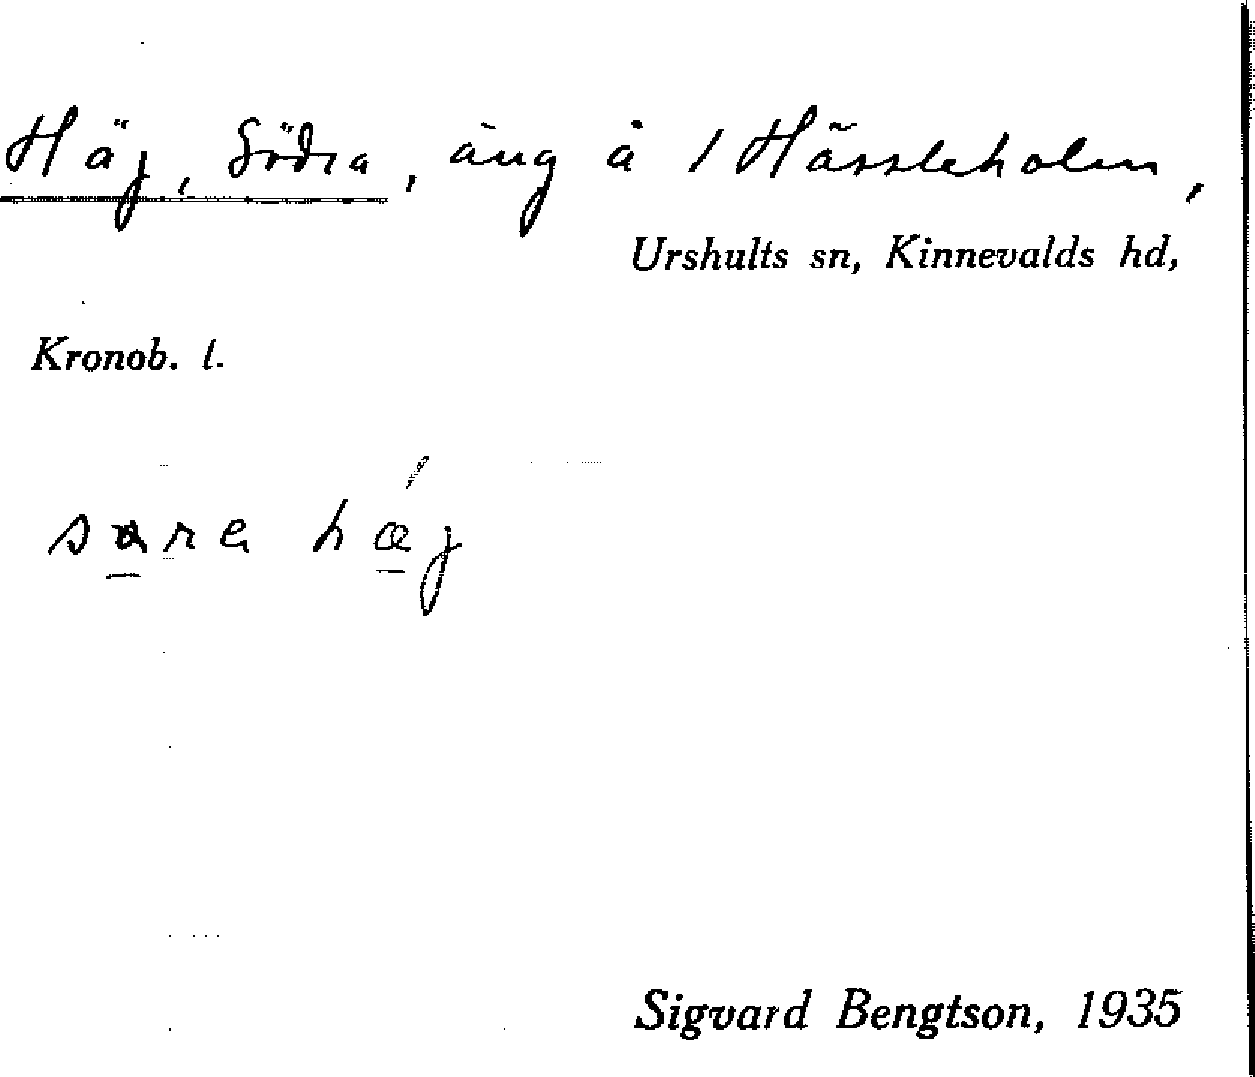 Häj, Södra, äng å 1 Hässleholm,
Urshults sn, Kinnevalds hd,
Kronob. l.
hæj
Sigvard Bengtson, 1935